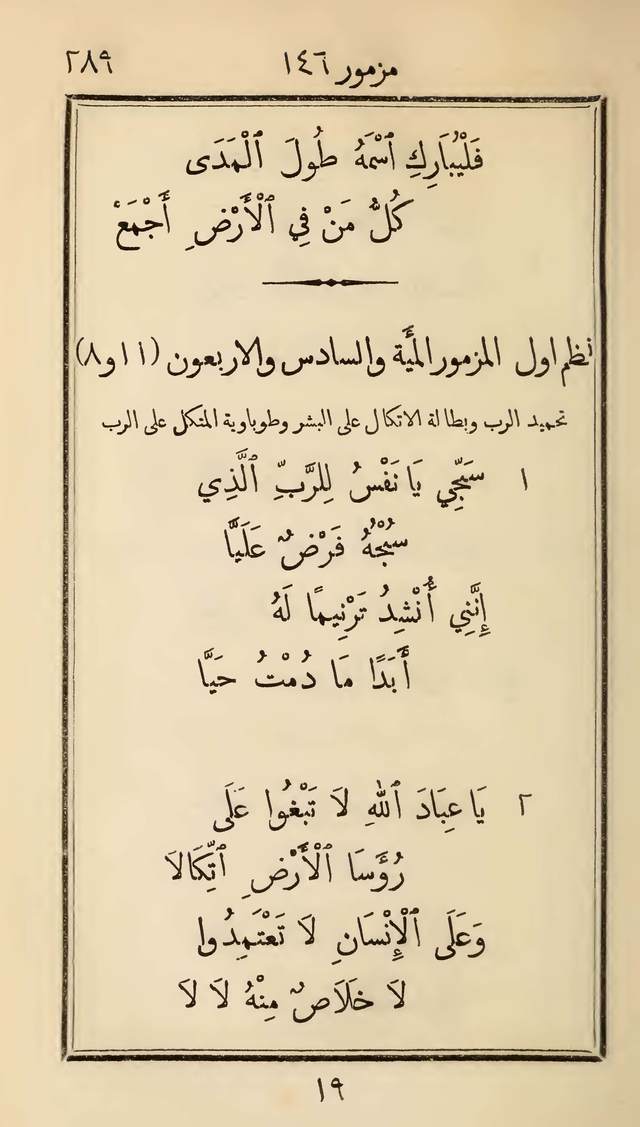 مزمور ١٤٦ ٢٨٩
فَلْيُبَارِكِ ٱسْمَهُ طُولَ ٱلْمَدَى
كُلُّ مَنْ فِي ٱلْأَرْضِ أَجْمَعْ
نظم اول المزمور المئَة والسادس والاربعون (١١ و٨)
تحميد الرب وبطالة الاتكال على البشر وطوباوية المتكل على الرب
١ سَبِّحِي يَا نَفْسُ لِلرَّبِّ ٱلَّذِي
سُبْحُهُ فَرْضٌ عَلَيَّا
إِنَّنِي أُنْشِدُ تَرْنِيمًا لَهُ
أَبَدًا مَا دُمْتُ حَيَّا
٢ يَا عِبَادَ ٱللهِ لَا تَبْغُوا عَلَى
رُؤَسَا ٱلْأَرْضِ ٱتِّكَالَا
وَعَلَى ٱلْإِنْسَانِ لَا تَعْتَمِدُوا
لَا خَلَاصٌ مِنْهُ لَا لَا
١٩